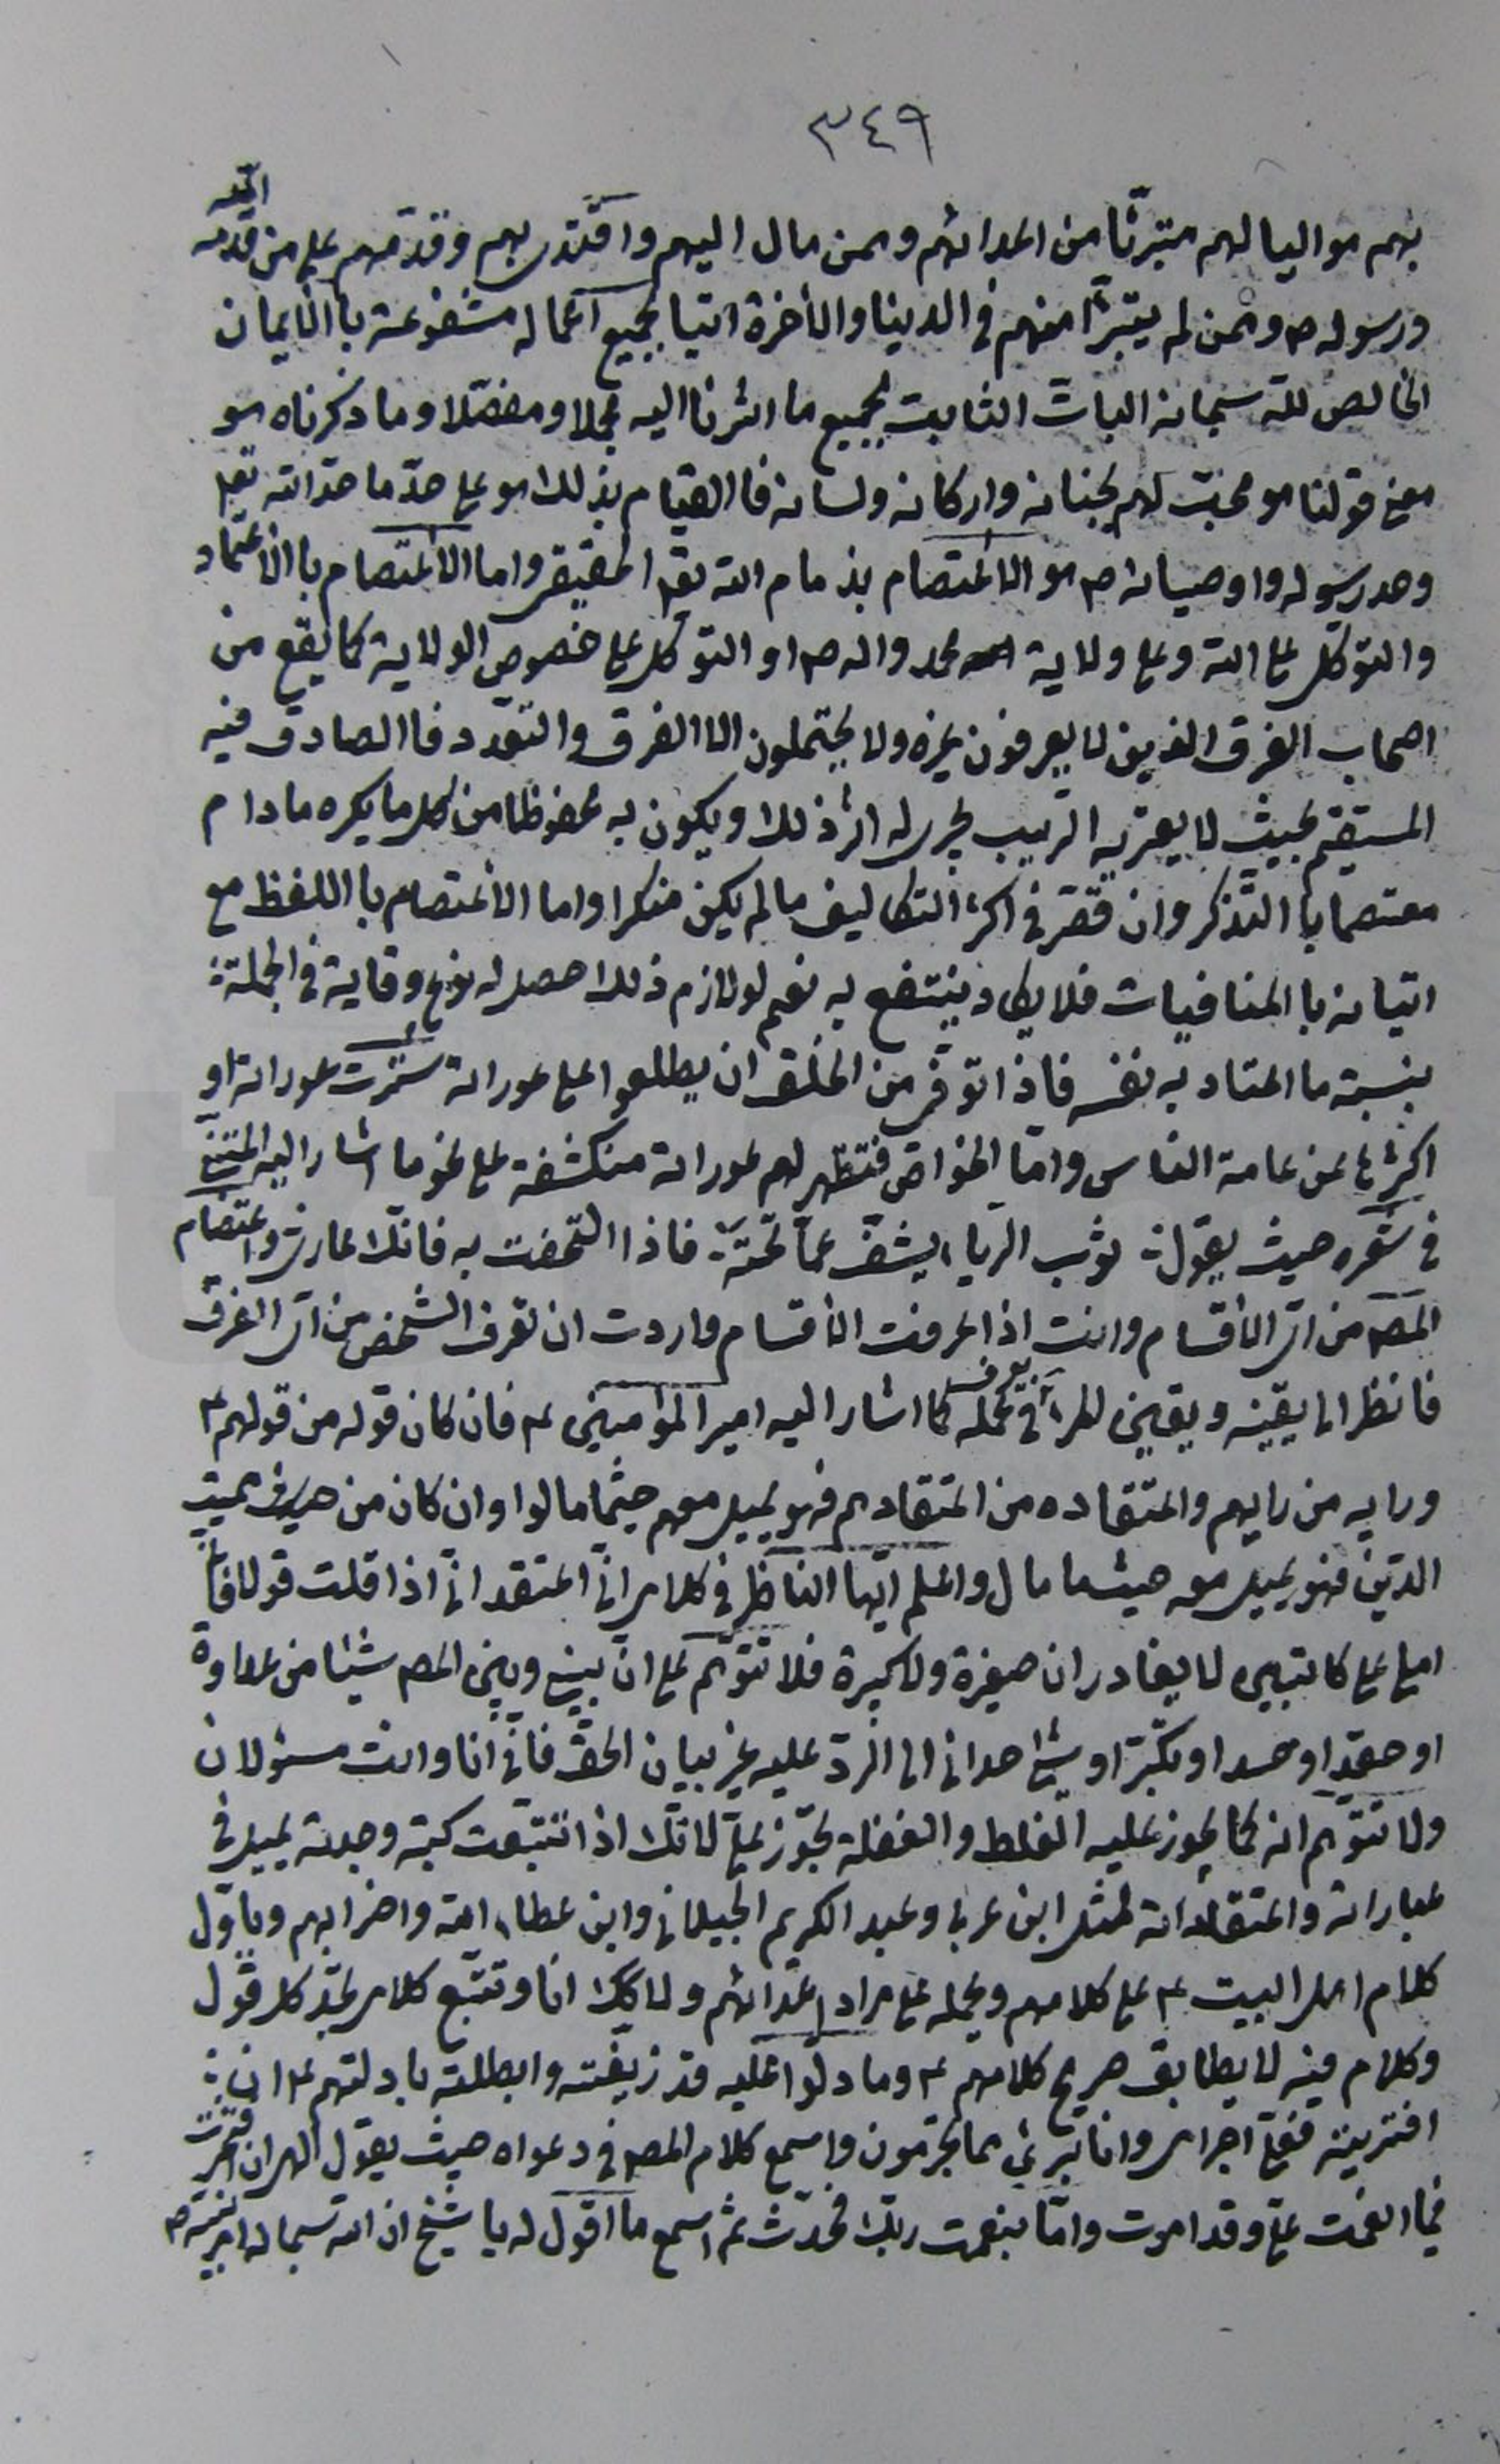 ٣٤٩
بهم مواليا لهم متبرئا من اعدائهم وممن مال اليهم واقتدى بهم وقدمهم على من قدمه الله
ورسوله ص وممن لم يتبرأ منهم في الدنيا والأخرة اتيا بجميع اعماله مشفوعة باالايمان
الخالص لله سبحانه البات الثابت بجميع ما اشرنا اليه مجملا ومفصلا وما ذكرناه هو
معنى قولنا هو محبت لهم بجنانه واركانه ولسانه فاالقيام بذلك هو على حدّ ما حدّ الله تعالى
وحد رسوله واوصيائه ص هو الاعتصام بذمام الله تعالى الحقيقى واما الاعتصام باالاعتماد
والتوكل على الله وعلى ولاية محمد واله ص او التوكل على خصوص الولاية كما يقع من
اصحاب الفرق الذين لا يعرفون غيره ولا يحتملون الا الفرق والتعدد فاالصادق فيه
المستقيم بحيث لا يعتريه الريب يجرى له اثر ذلك ويكون به محفوظا من كل ما يكره ما دام
معتصما باالتذكر وان قصّر في اكثر التكاليف ما لم يكن منكرا واما الاعتصام باللفظ مع
اتيانه باالمنافيات فلا يكاد ينتفع به نعم لو لازم ذلك حصل له نوع وقاية في الجملة
بنسبة ما اعتاد به نفسه فاذا توقى من الخلق ان يطلعوا على عوراته سترت عوراته او
اكثرها عن عامة الناس وامّا الخواص فتظهر لهم عوراته منكشفة على نحو ما اشار اليه المتنبى
في شعره حيث يقول: ثوب الرياء يشفّ عمّا تحته فاذا التحفت به فانّك عارى واعتصام
المص من اىّ الأقسام وانت اذا عرفت الأقسام واردت ان تعرف الشخص من اىّ الفرق
فانظر الى يقينه ويقين المرأ يعرف في عمله كما اشار اليه امير المؤمنين ع فان كان قوله من قولهم ع
ورايه من رايهم واعتقاده من اعتقادهم فهو يميل معهم حيثما مالوا وان كان من مميت
الدين فهو يميل معه حيثما مال واعلم ايّها الناظر في كلامى انّى اعتقد انّى اذا قلت قولا فانّما
املى على كاتبين لا يغادران صغيرة ولا كبيرة فلا تتوهّم على انّ بينى وبين المص شيئا من عداوة
او حقد او حسد او تكبّر او شئ احدانى الى الردّ عليه غير بيان الحق فانّى انا وانت مسئولان
ولا تتوهّم انه كما يجوز عليه الغلط والغفلة تجوّز علىّ لانّك اذا تتبّعت كتبه وجدته يميل في
عباراته واعتقاداته لمثل ابن عربى وعبد الكريم الجيلانى وابن عطاء الله واضرابهم ويأوّل
كلام اهل البيت ع على كلامهم ويحمله على مراد اعدائهم ولا كك انا وتتبّع كلامى تجد كل قول
وكلام فيه لا يطابق صريح كلامهم ع وما دلّوا عليه قد زيّفته وابطلته بادلتهم ع ان
افتريته فعلىّ اجرامى وانا برئ مما تجرمون واسمع كلام المص في دعواه حيث يقول
فيما انعمت علىّ وقد امرت وامّا بنعمت ربّك فحدّث ثم اسمع ما اقول له يا شيخ ان الله سبحانه